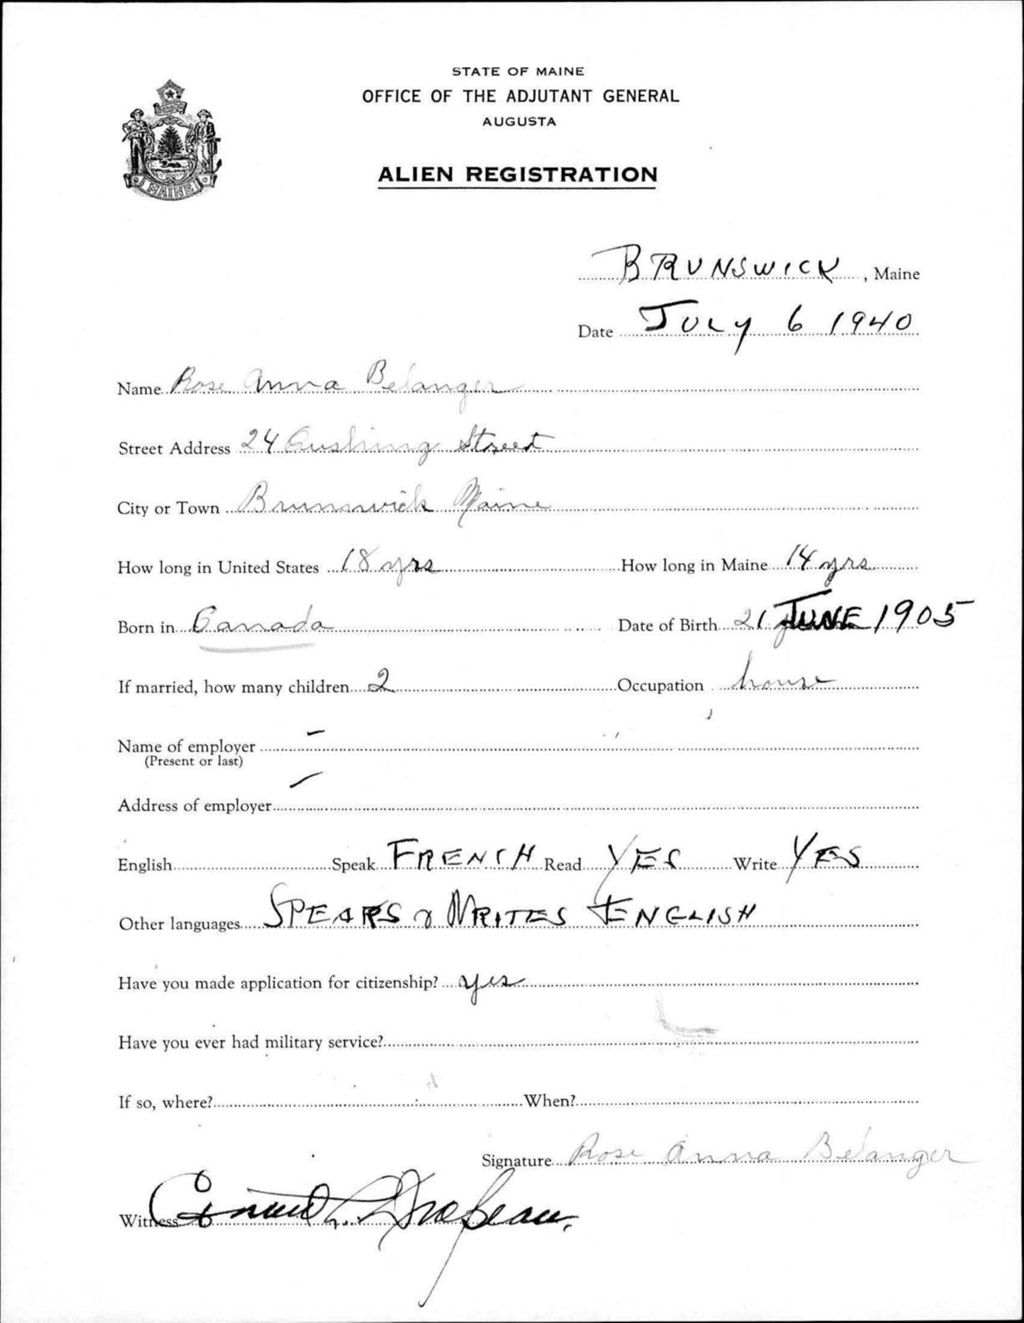 STATE OF MAINE
OFFICE OF THE ADJUTANT GENERAL
AUGUSTA
ALIEN REGISTRATION
MAINE
BRUNSWICK, Maine
Date JULY 6 1940
Name Rose Anna Belanger
Street Address 24 Cushing Street
City or Town Brunswick Maine
How long in United States 18 yrs How long in Maine 14 yrs
Born in Canada Date of Birth 21 JUNE 1905
If married, how many children 2 Occupation house
Name of employer -
(Present or last)
Address of employer -
English Speak FRENCH Read YES Write YES
Other languages SPEAKS & WRITES ENGLISH
Have you made application for citizenship? yes
Have you ever had military service?
If so, where? When?
Signature Rose Anna Belanger
Witness